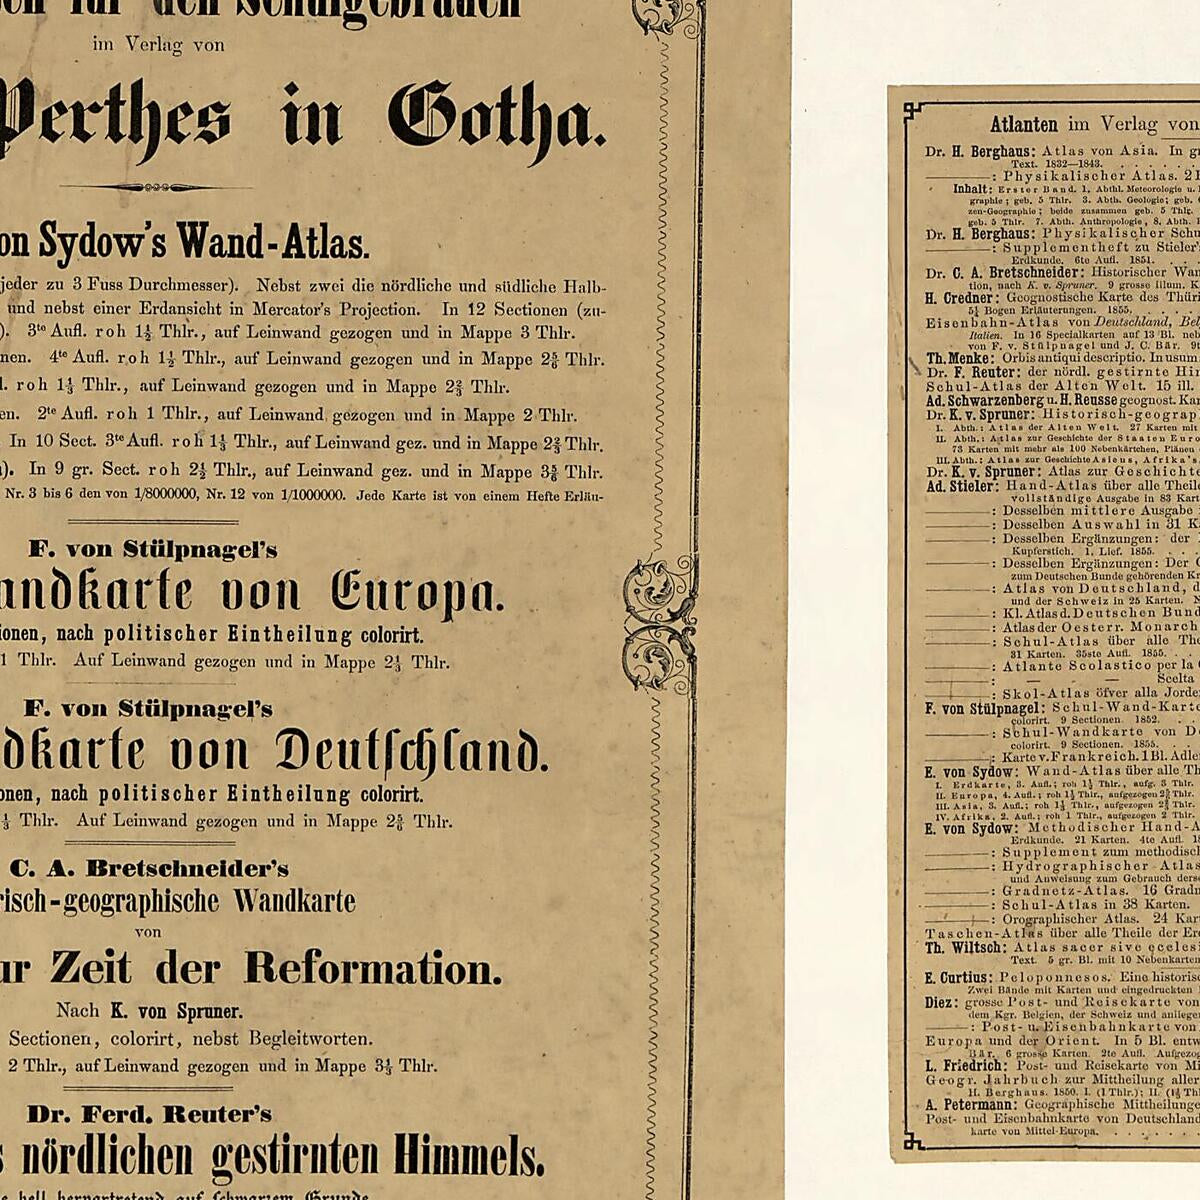 für den Schulgebrauch
im Verlag von
Perthes in Gotha.
on Sydow's Wand-Atlas.
jeder zu 3 Fuss Durchmesser). Nebst zwei die nördliche und südliche Halb-
und nebst einer Erdansicht in Mercator's Projection. In 12 Sectionen (zu-
). 3te Aufl. roh 1½ Thlr., auf Leinwand gezogen und in Mappe 3 Thlr.
nen. 4te Aufl. roh 1½ Thlr., auf Leinwand gezogen und in Mappe 2⅚ Thlr.
l. roh 1⅓ Thlr., auf Leinwand gezogen und in Mappe 2⅔ Thlr.
en. 2te Aufl. roh 1 Thlr., auf Leinwand gezogen und in Mappe 2 Thlr.
In 10 Sect. 3te Aufl. roh 1⅓ Thlr., auf Leinwand gez. und in Mappe 2⅔ Thlr.
). In 9 gr. Sect. roh 2½ Thlr., auf Leinwand gez. und in Mappe 3⅚ Thlr.
Nr. 3 bis 6 den von 1/8000000, Nr. 12 von 1/1000000. Jede Karte ist von einem Hefte Erläu-
F. von Stülpnagel's
andkarte von Europa.
ionen, nach politischer Eintheilung colorirt.
1 Thlr. Auf Leinwand gezogen und in Mappe 2⅓ Thlr.
F. von Stülpnagel's
dkarte von Deutschland.
onen, nach politischer Eintheilung colorirt.
⅓ Thlr. Auf Leinwand gezogen und in Mappe 2⅚ Thlr.
C. A. Bretschneider's
risch-geographische Wandkarte
von
ur Zeit der Reformation.
Nach K. von Spruner.
Sectionen, colorirt, nebst Begleitworten.
2 Thlr., auf Leinwand gezogen und in Mappe 3⅓ Thlr.
Dr. Ferd. Reuter's
s nördlichen gestirnten Himmels.
hell hervortretend auf schwarzem Grunde
Atlanten im Verlag von
Dr. H. Berghaus: Atlas von Asia. In gr
Text. 1832—1843. . . . . . .
———: Physikalischer Atlas. 2
Inhalt: Erster Band. 1. Abthl. Meteorologie u.
graphie; geb. 5 Thlr. 3. Abth. Geologie; geb.
zen-Geographie; beide zusammen geb. 5 Thlr.
geb. 5 Thlr. 7. Abth. Anthropologie, 8. Abth.
Dr. H. Berghaus: Physikalischer Schu
———: Supplementheft zu Stieler's
Erdkunde. 6te Aufl. 1851. . . .
Dr. C. A. Bretschneider: Historischer Wan
tion, nach K. v. Spruner. 9 grosse illum. K
H. Credner: Geognostische Karte des Thüri
5½ Bogen Erläuterungen. 1855. . . . .
Eisenbahn-Atlas von Deutschland, Bel
Italien. In 16 Specialkarten auf 13 Bl. neb
von F. v. Stülpnagel und J. C. Bär. 9t
Th. Menke: Orbis antiqui descriptio. In usum
Dr. F. Reuter: der nördl. gestirnte Him
Schul-Atlas der Alten Welt. 15 ill.
Ad. Schwarzenberg u. H. Reusse geognost. Kar
Dr. K. v. Spruner: Historisch-geograp
I. Abth.: Atlas der Alten Welt. 27 Karten mit
II. Abth.: Atlas zur Geschichte der Staaten Euro
73 Karten mit mehr als 100 Nebenkärtchen, Plänen
III. Abth.: Atlas zur Geschichte Asiens, Afrika's,
Dr. K. v. Spruner: Atlas zur Geschichte
Ad. Stieler: Hand-Atlas über alle Theile
vollständige Ausgabe in 83 Kart
———: Desselben mittlere Ausgabe
———: Desselben Auswahl in 31 K
———: Desselben Ergänzungen: der
Kupferstich. 1. Lief. 1855. . .
———: Desselben Ergänzungen: Der
zum Deutschen Bunde gehörenden Kr
———: Atlas von Deutschland, d
und der Schweiz in 25 Karten. N
———: Kl. Atlas d. Deutschen Bund
———: Atlas der Oesterr. Monarch
———: Schul-Atlas über alle The
31 Karten. 35ste Aufl. 1855. . .
———: Atlante Scolastico per la
———: — — — Scelta
———: Skol-Atlas öfver alla Jorde
F. von Stülpnagel: Schul-Wand-Karte
colorirt. 9 Sectionen. 1852. . .
———: Schul-Wandkarte von De
colorirt. 9 Sectionen. 1855. . .
———: Karte v. Frankreich. 1 Bl. Adler
E. von Sydow: Wand-Atlas über alle Th
I. Erdkarte, 3. Aufl.; roh 1½ Thlr., aufg. 3 Thlr.
II. Europa, 4. Aufl.; roh 1½ Thlr., aufgezogen 2⅚ Thlr.
III. Asia, 3. Aufl.; roh 1⅓ Thlr., aufgezogen 2⅔ Thlr.
IV. Afrika, 2. Aufl.; roh 1 Thlr., aufgezogen 2 Thlr.
E. von Sydow: Methodischer Hand-A
Erdkunde. 21 Karten. 4te Aufl. 18
———: Supplement zum methodisch
———: Hydrographischer Atlas
und Anweisung zum Gebrauch derse
———: Gradnetz-Atlas. 16 Gradn
———: Schul-Atlas in 38 Karten.
———: Orographischer Atlas. 24 Kar
Taschen-Atlas über alle Theile der Erd
Th. Wiltsch: Atlas sacer sive ecclesi
Text. 5 gr. Bl. mit 10 Nebenkarten
E. Curtius: Peloponnesos. Eine historisc
Zwei Bände mit Karten und eingedruckten
Diez: grosse Post- und Reisekarte von
dem Kgr. Belgien, der Schweiz und anliegen
———: Post- u. Eisenbahnkarte von
Europa und der Orient. In 5 Bl. entw
Bär. 6 grosse Karten. 2te Aufl. Aufgezog
L. Friedrich: Post- und Reisekarte von Mi
Geogr. Jahrbuch zur Mittheilung aller
H. Berghaus. 1850. I. (1 Thlr.); II. (1⅓ Th
A. Petermann: Geographische Mittheilunge
Post- und Eisenbahnkarte von Deutschland
karte von Mittel-Europa. . . . . . . .